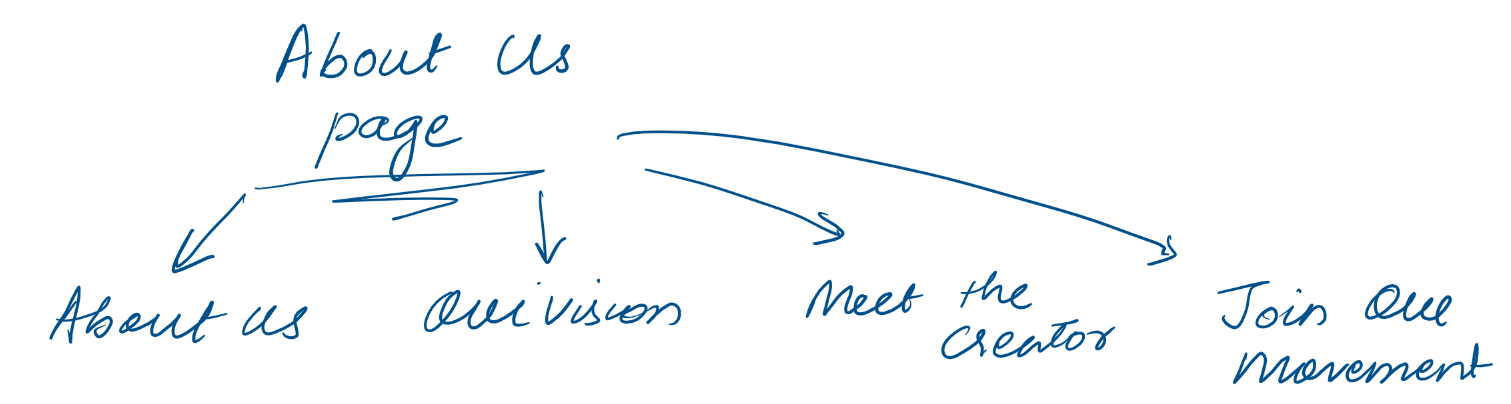 About Us
page
About us
Our Vision
Meet the
Creator
Join Our
Movement